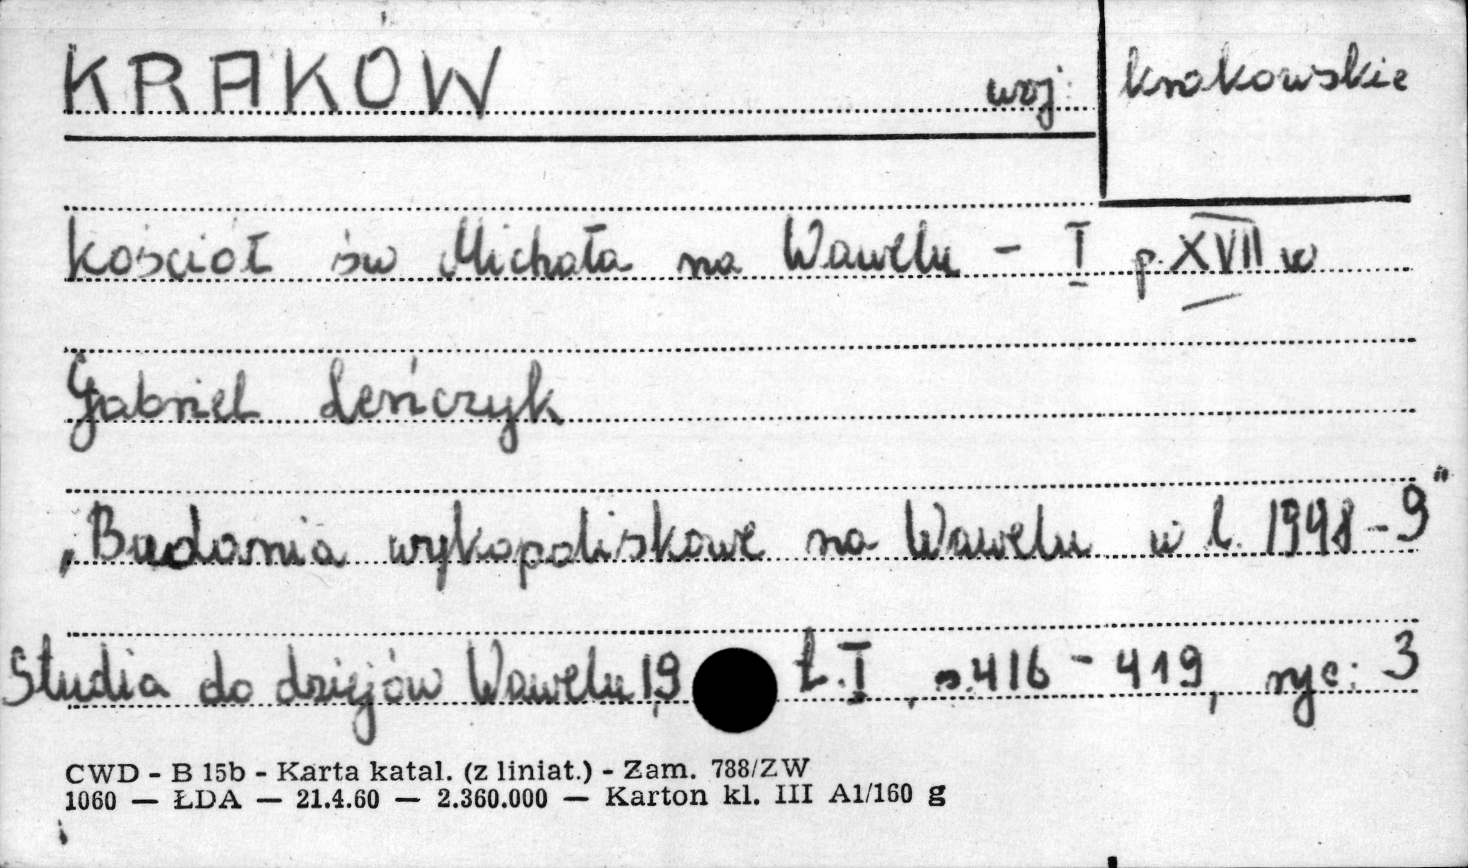 KRAKÓW woj: krakowskie
kościół św Michała na Wawelu - I p. XVII w
Gabriel Leńczyk
„Badania wykopaliskowe na Wawelu w l. 1948-9"
Studia do dziejów Wawelu, 19 t. I, s. 416 - 419, ryc: 3
CWD - B 15b - Karta katal. (z liniat.) - Zam. 788/ZW
1060 — ŁDA — 21.4.60 — 2.360.000 — Karton kl. III A1/160 g